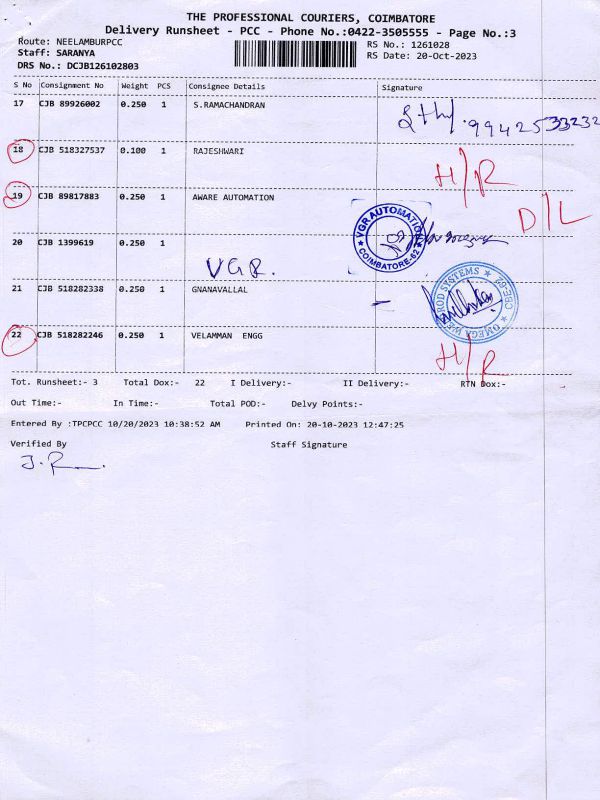 THE PROFESSIONAL COURIERS, COIMBATORE
Delivery Runsheet - PCC - Phone No.:0422-3505555 - Page No.:3
Route: NEELAMBURPCC
RS No.: 1261028
Staff: SARANYA
RS Date: 20-Oct-2023
DRS No.: DCJB126102803
S No Consignment No Weight PCS Consignee Details Signature
17 CJB 89926002 0.250 1 S.RAMACHANDRAN
9942533232
18 CJB 518327537 0.100 1 RAJESHWARI
H/R
19 CJB 89817883 0.250 1 AWARE AUTOMATION
D/L
VGR AUTOMATION
COIMBATORE-62
20 CJB 1399619 0.250 1
VGR.
21 CJB 518282338 0.250 1 GNANAVALLAL
OMEGA WELDROD SYSTEMS
CBE-62
22 CJB 518282246 0.250 1 VELAMMAN ENGG
H/R
Tot. Runsheet:- 3 Total Dox:- 22 I Delivery:- II Delivery:- RTN Dox:-
Out Time:- In Time:- Total POD:- Delvy Points:-
Entered By :TPCPCC 10/20/2023 10:38:52 AM Printed On: 20-10-2023 12:47:25
Verified By Staff Signature